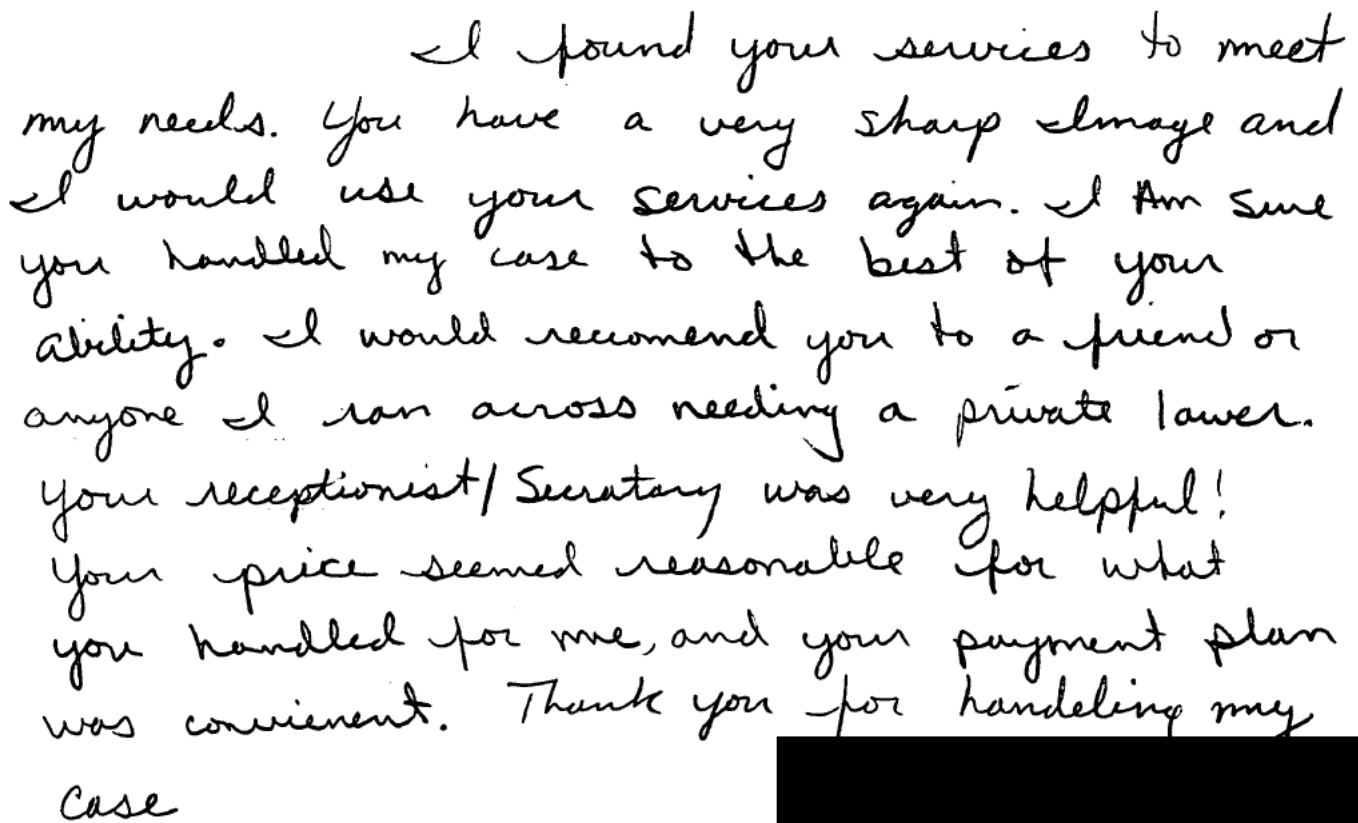 I found your services to meet
my needs. You have a very sharp Image and
I would use your services again. I Am Sure
you handled my case to the best of your
ability. I would reccomend you to a friend or
anyone I ran across needing a private lawer.
Your receptionist/Secratary was very helpful!
Your price seemed reasonable for what
you handled for me, and your payment plan
was convienent. Thank you for handeling my
case